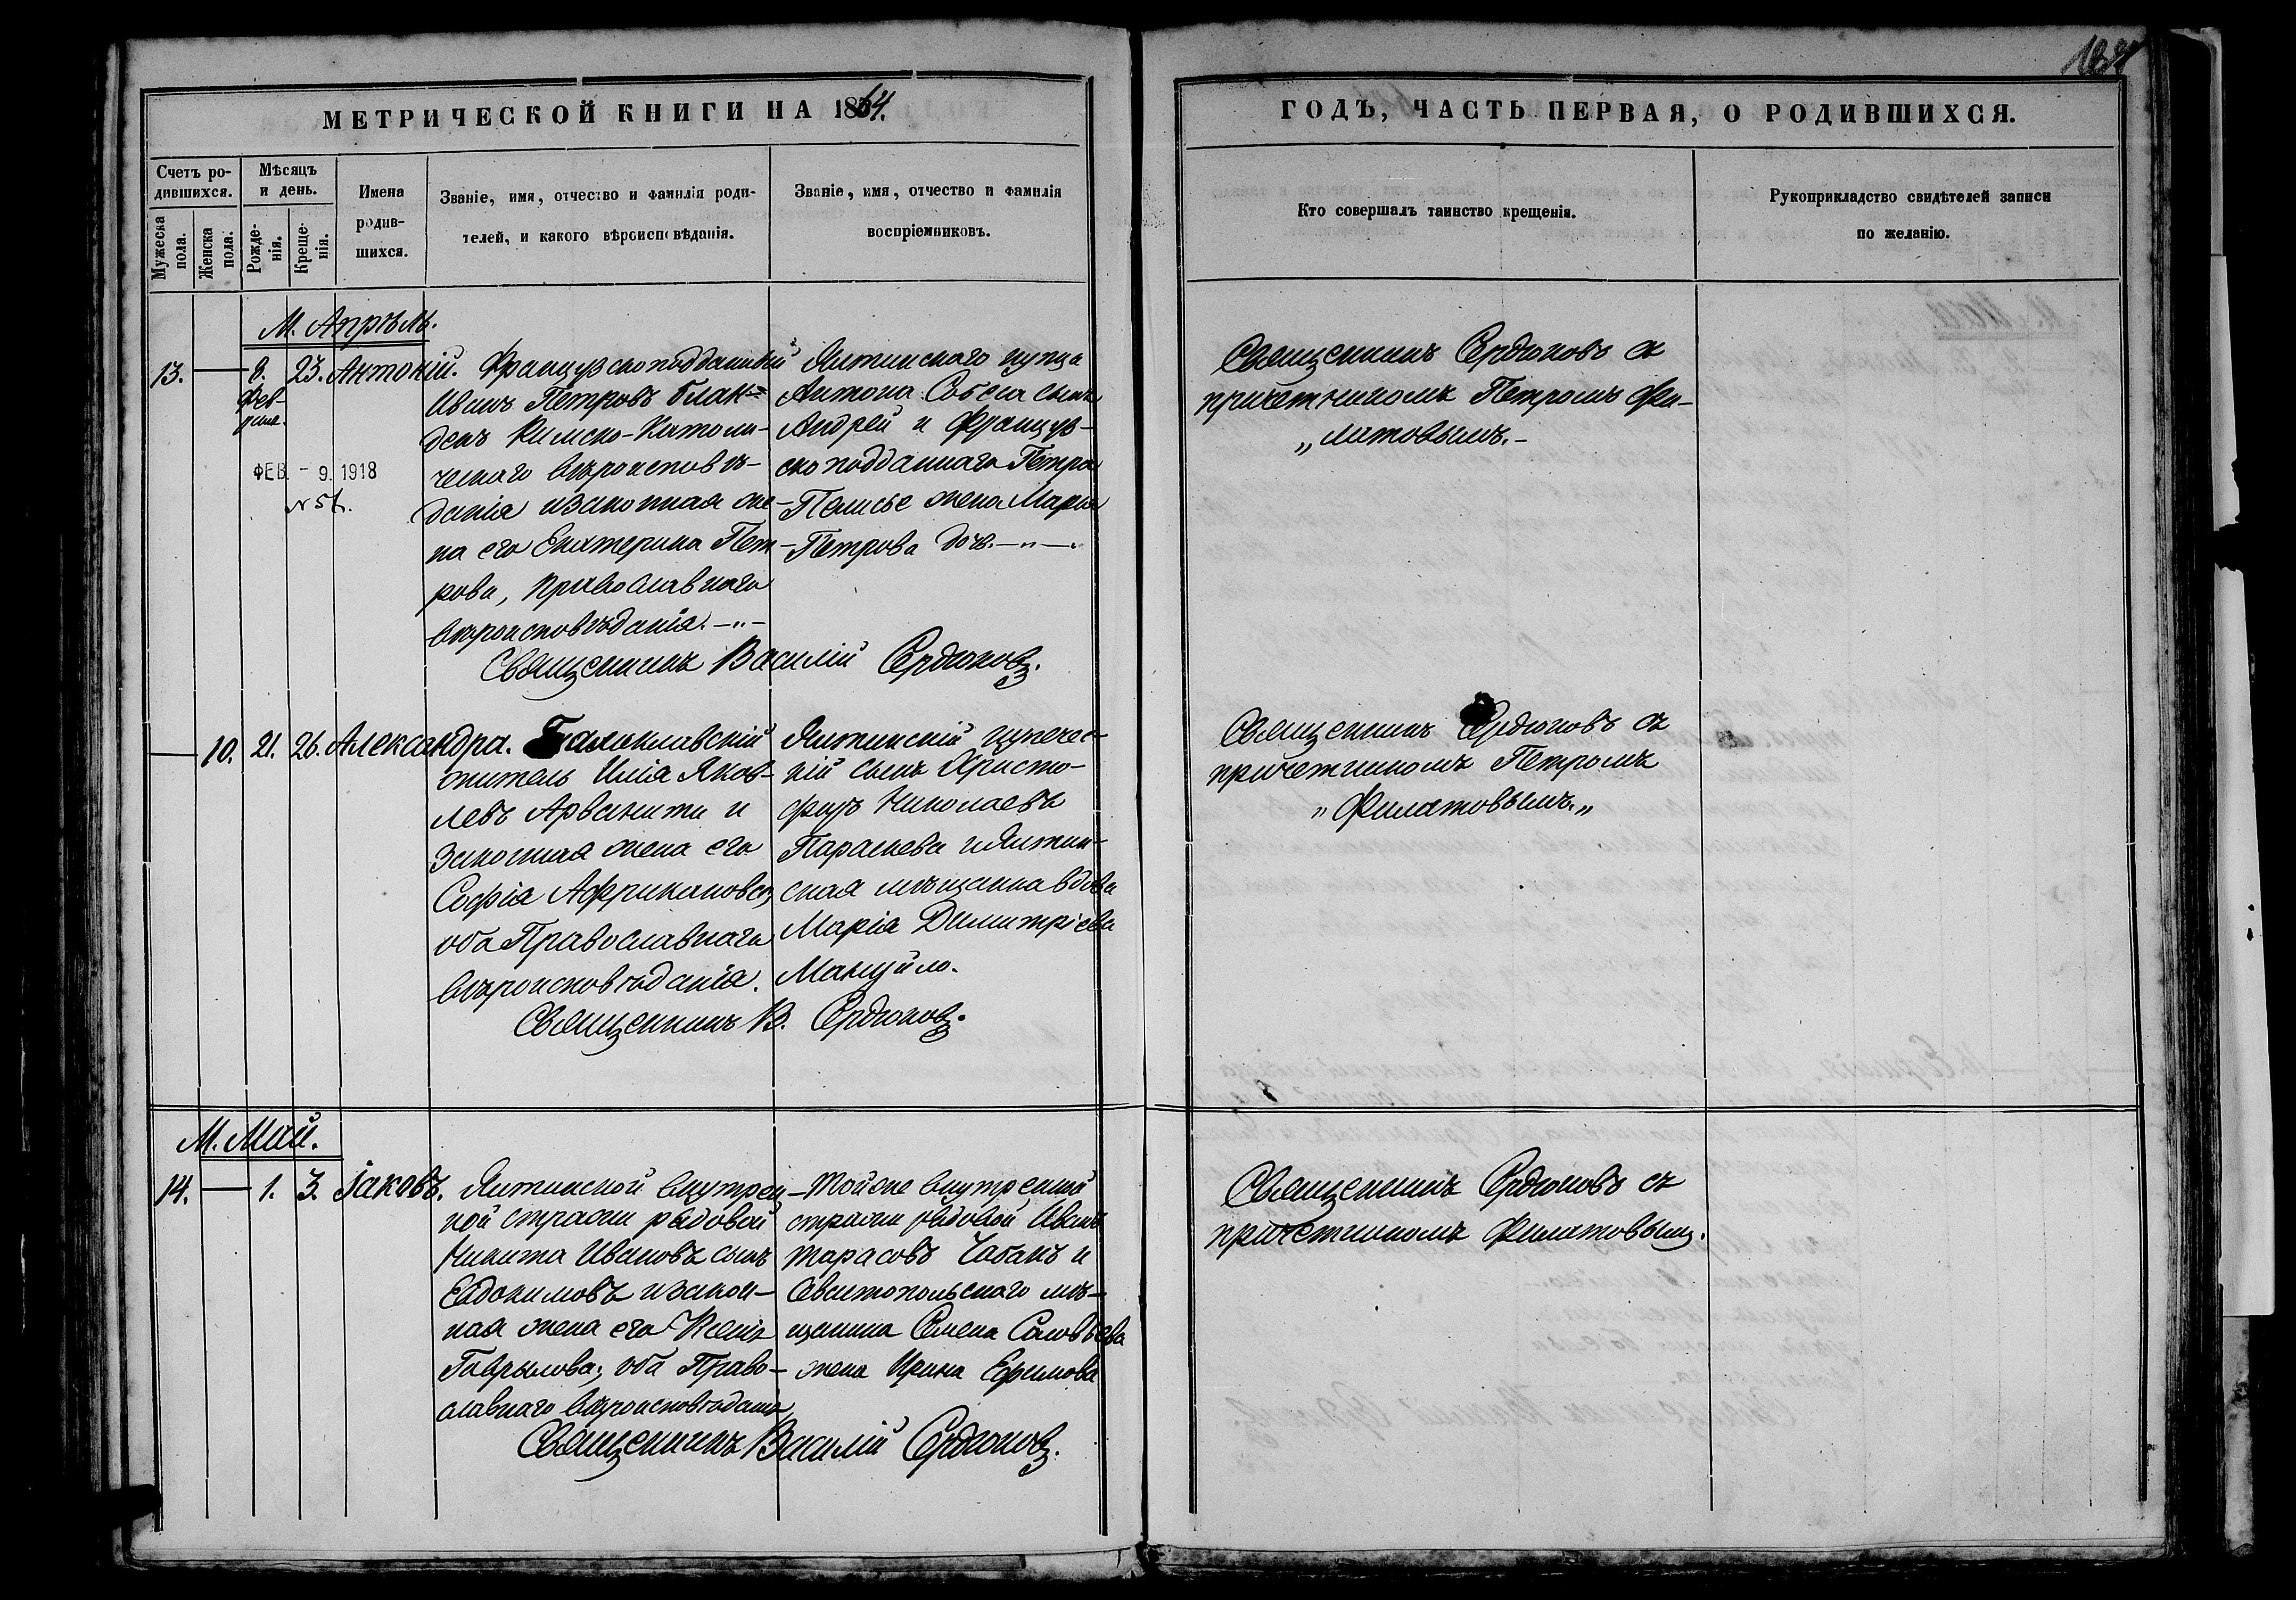 184
МЕТРИЧЕСКОЙ КНИГИ НА 1864.
ГОДЪ, ЧАСТЬ ПЕРВАЯ, О РОДИВШИХСЯ.
Счетъ ро-
дившихся.
Мужеска
пола.
Женска
пола.
Мѣсяцъ
и день.
Рожде-
нія.
Креще-
нія.
Имена
родив-
шихся.
Званіе, имя, отчество и фамилія роди-
телей, и какого вѣроисповѣданія.
Званіе, имя, отчество и фамилія
воспріемниковъ.
Кто совершалъ таинство крещенія.
Рукоприкладство свидѣтелей записи
по желанію.
М. Апрѣль.
13. — 8. 23. Антоній.
Фев-
раля.
ФЕВ. - 9. 1918
№ 51.
Французскоподданный
Иванъ Петровъ Блан=
денъ Римско-Католи-
ческаго вѣроисповѣ-
данія и законная же-
на его Екатерина Пет-
рова, православнаго
вѣроисповѣданія. —"—
Ялтинскаго купца
Антона сынъ
Андрей и Француз-
скоподданнаго Петра
жена Марія
Петрова дочь. —"—.
Священникъ Василій Сердюковъ.
Священникъ Сердюковъ съ
причетникомъ Петромъ Фи-
„латовымъ.-
— 10. 21. 26. Александра.
Балаклавскій
житель Илія Яков-
левъ Арванити и
законная жена его
Софія Африкановa,
оба Православнаго
вѣроисповѣданія.
Ялтинскій купечес-
кій сынъ Христо-
форъ Николаевъ
Параскева и Ялтин-
ская мѣщанка вдова
Марія Димитріева
Мануйло.
Священникъ В. Сердюковъ.
Священникъ Сердюковъ съ
причетникомъ Петромъ
„Филатовымъ.„
М. Май.
14. — 1. 3. Іаковъ.
Ялтинской внутрен-
ной стражи рядовой
Никита Ивановъ сынъ
Евдокимовъ и закон-
ная жена его Ксенія
Гаврылова; оба Право-
славнаго вѣроисповѣданія
Той же внутренной
стражи рядовой Иванъ
Тарасовъ Чабанъ и
Севастопольскаго мѣ-
щанина Семена Соловьева
жена Ирина Ефимова
Священникъ Василій Сердюковъ.
Священникъ Сердюковъ съ
причетникомъ Филатовымъ.